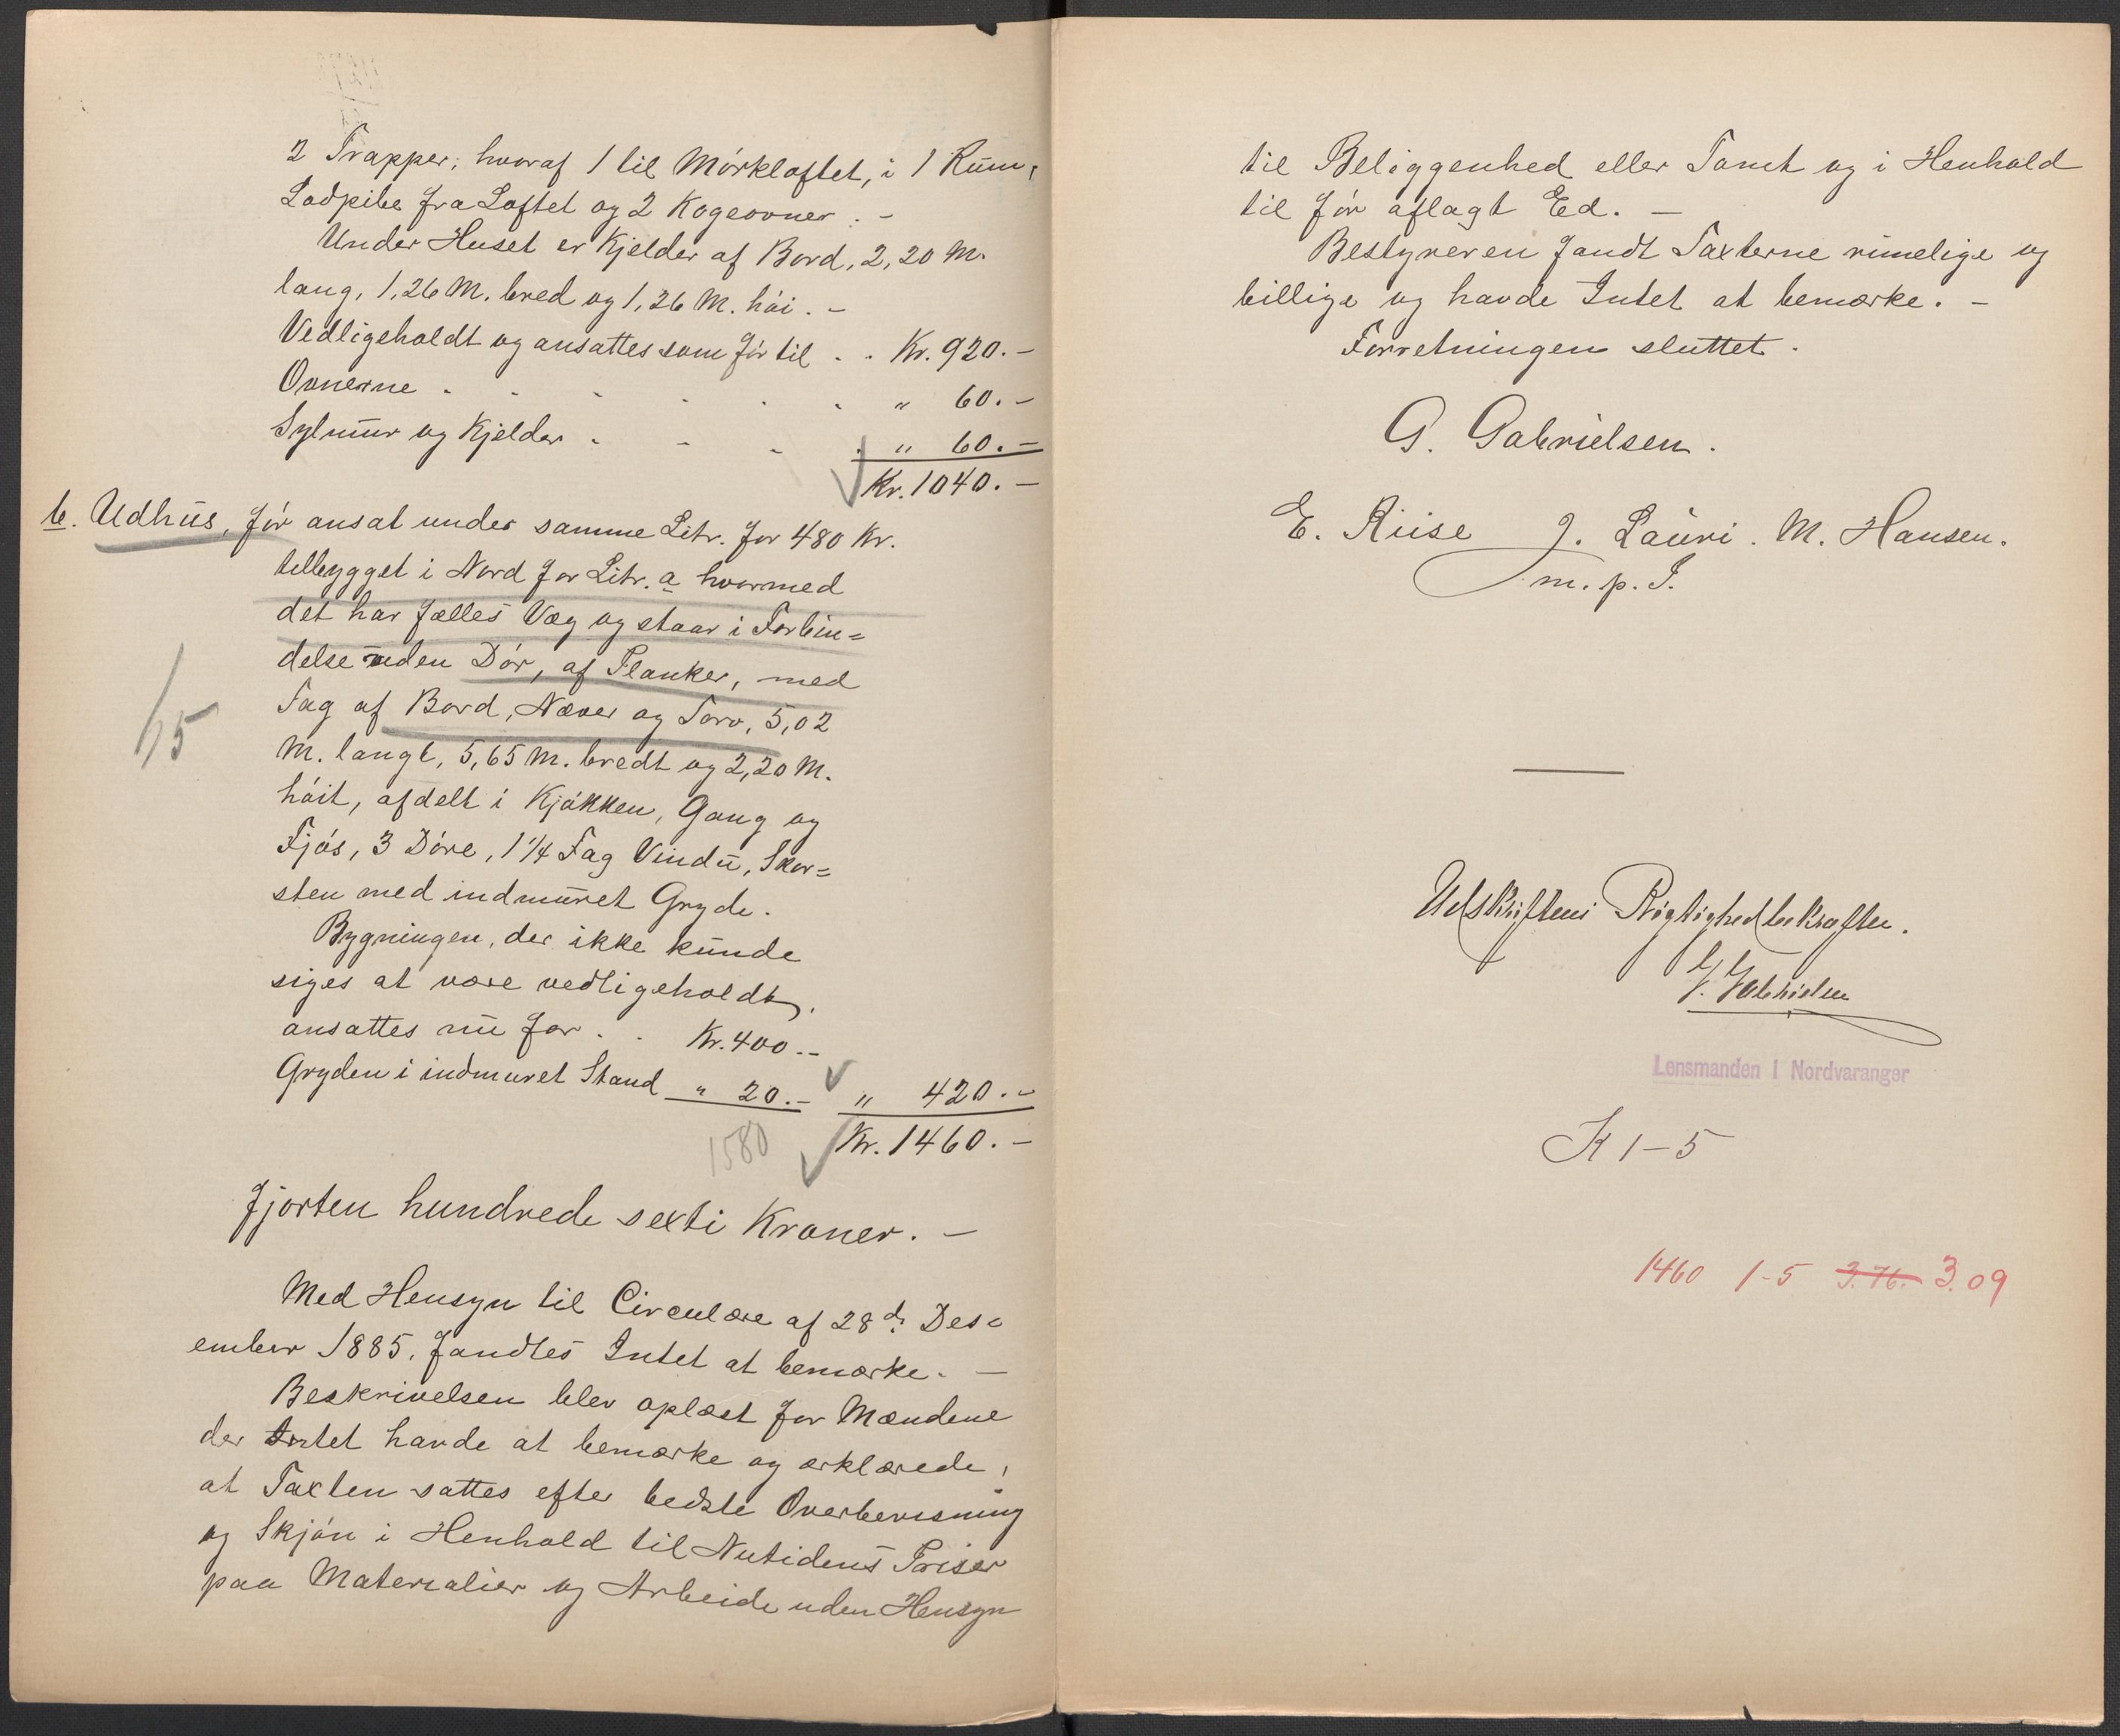 2 Trapper, hvoraf 1 til Mørkloftet, i 1 Rum,
Ladpibe fra Loftet og 2 Kogeovner. -
Under Huset er Kjelder af Bord, 2,20 M.
lang, 1,26 M. bred og 1,26 M. høi. -
Vedligeholdt og ansattes som før til . . Kr. 920. -
Ovnerne . . . . . . " 60. -
Sylmur og Kjelder . . . . " 60. -
Kr. 1040. -
b. Udhus, før ansat under samme Litr. for 480 Kr.
tilbygget i Nord for Litr. a hvormed
det har fælles Væg og staar i Forbin=
delse uden Dør, af Planker, med
Tag af Bord, Næver og Torv, 5,02
M. langt, 5,65 M. bredt og 2,20 M.
høit, afdelt i Kjøkken, Gang og
Fjøs, 3 Døre, 1 1/4 Fag Vindu, Skor=
sten med indmuret Gryde.
Bygningen, der ikke kunde
siges at være vedligeholdt,
ansattes nu for . . Kr. 400. -
Gryden i indmuret Stand " 20. - " 420. -
1580 Kr. 1460. -
1/5
fjorten hundrede sexti Kroner. -
Med Hensyn til Circulære af 28d: Des=
ember 1885, fandtes Intet at bemærke. -
Beskrivelsen blev oplæst for Mændene
der Intet havde at bemærke og erklærede,
at Taxten sattes efter bedste Overbevisning
og Skjøn i Henhold til Nutidens Priser
paa Materialier og Arbeide uden Hensyn
til Beliggenhed eller Tomt og i Henhold
til før aflagt Ed. -
Bestyreren fandt Taxterne rimelige og
billige og havde Intet at bemærke. -
Forretningen sluttet.
G. Gabrielsen.
E. Riise J. Lauri. M. Hansen.
m. p. S.
Udskriftens Rigtighed bekræftes.
G. Gabrielsen
Lensmanden i Nordvaranger
K 1-5
1460 1-5 3.76. 3.09